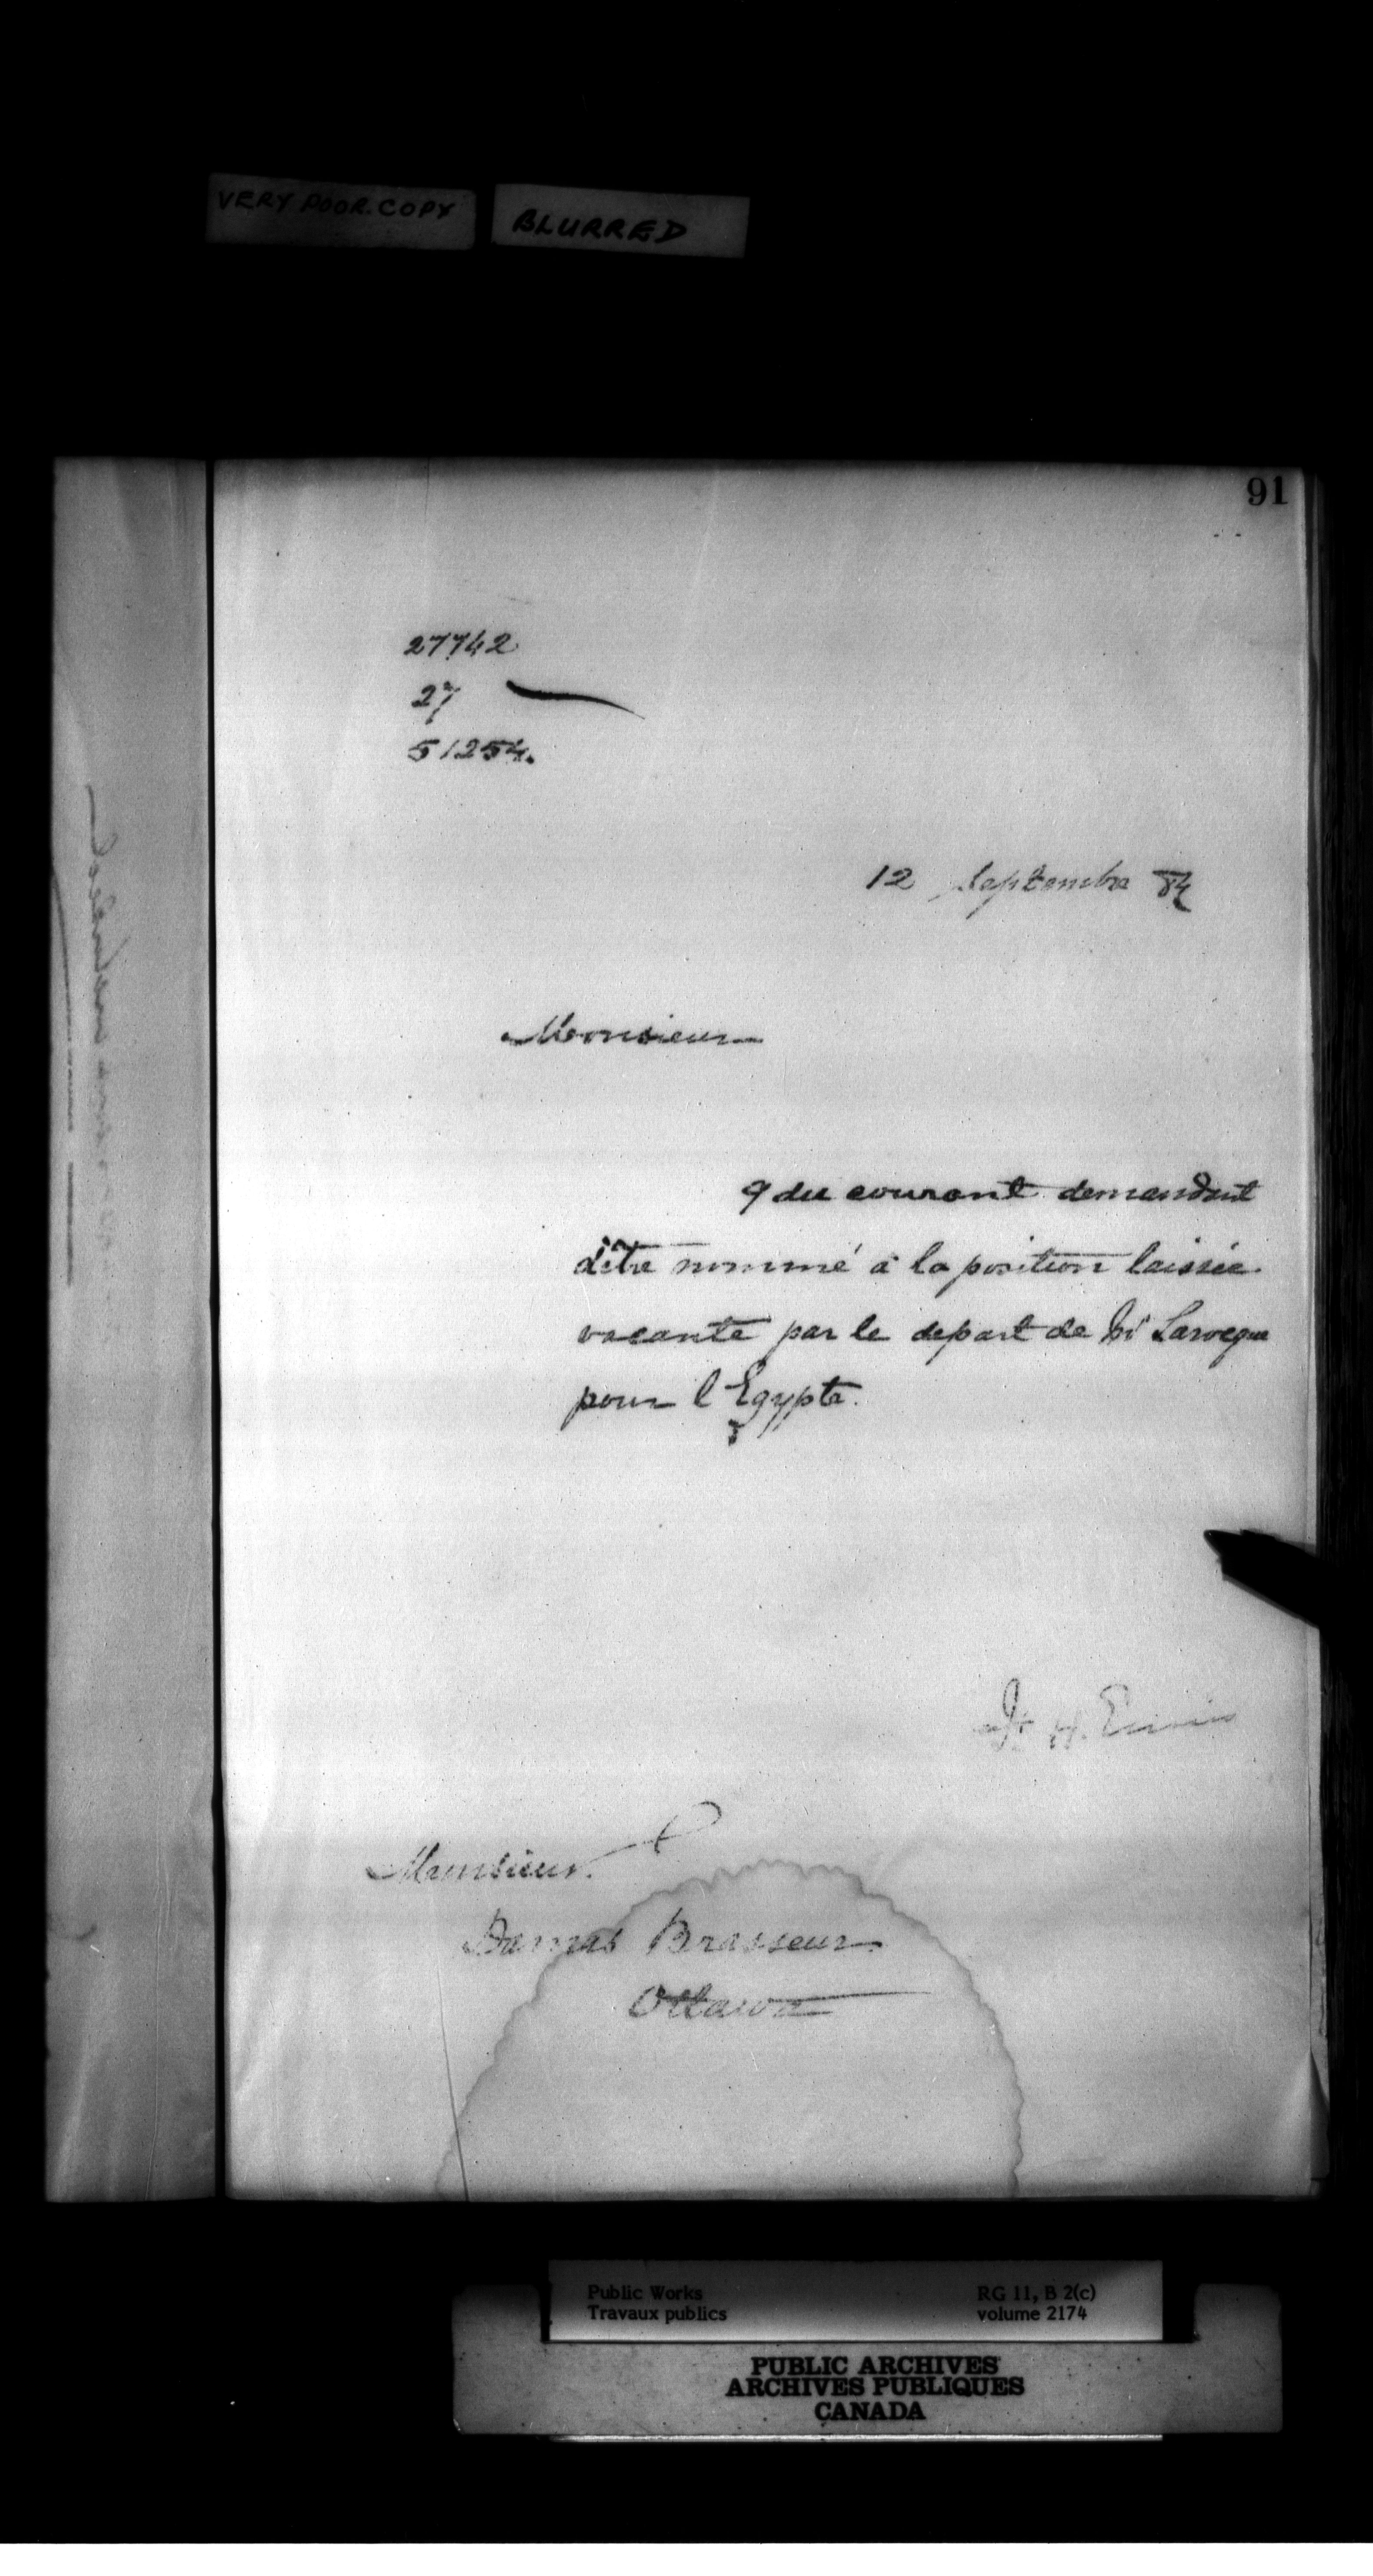 VERY POOR COPY
BLURRED
91
27742
27
51254.
12 Septembre 84
Monsieur
9 du courant demandant
d'être nommé à la position laissée
vacante par le depart de Mr Larocque
pour l'Egypte.
H. Ennis
Monsieur
Damas Brasseur
Ottawa
Public Works
Travaux publics
RG 11, B 2(c)
volume 2174
PUBLIC ARCHIVES
ARCHIVES PUBLIQUES
CANADA